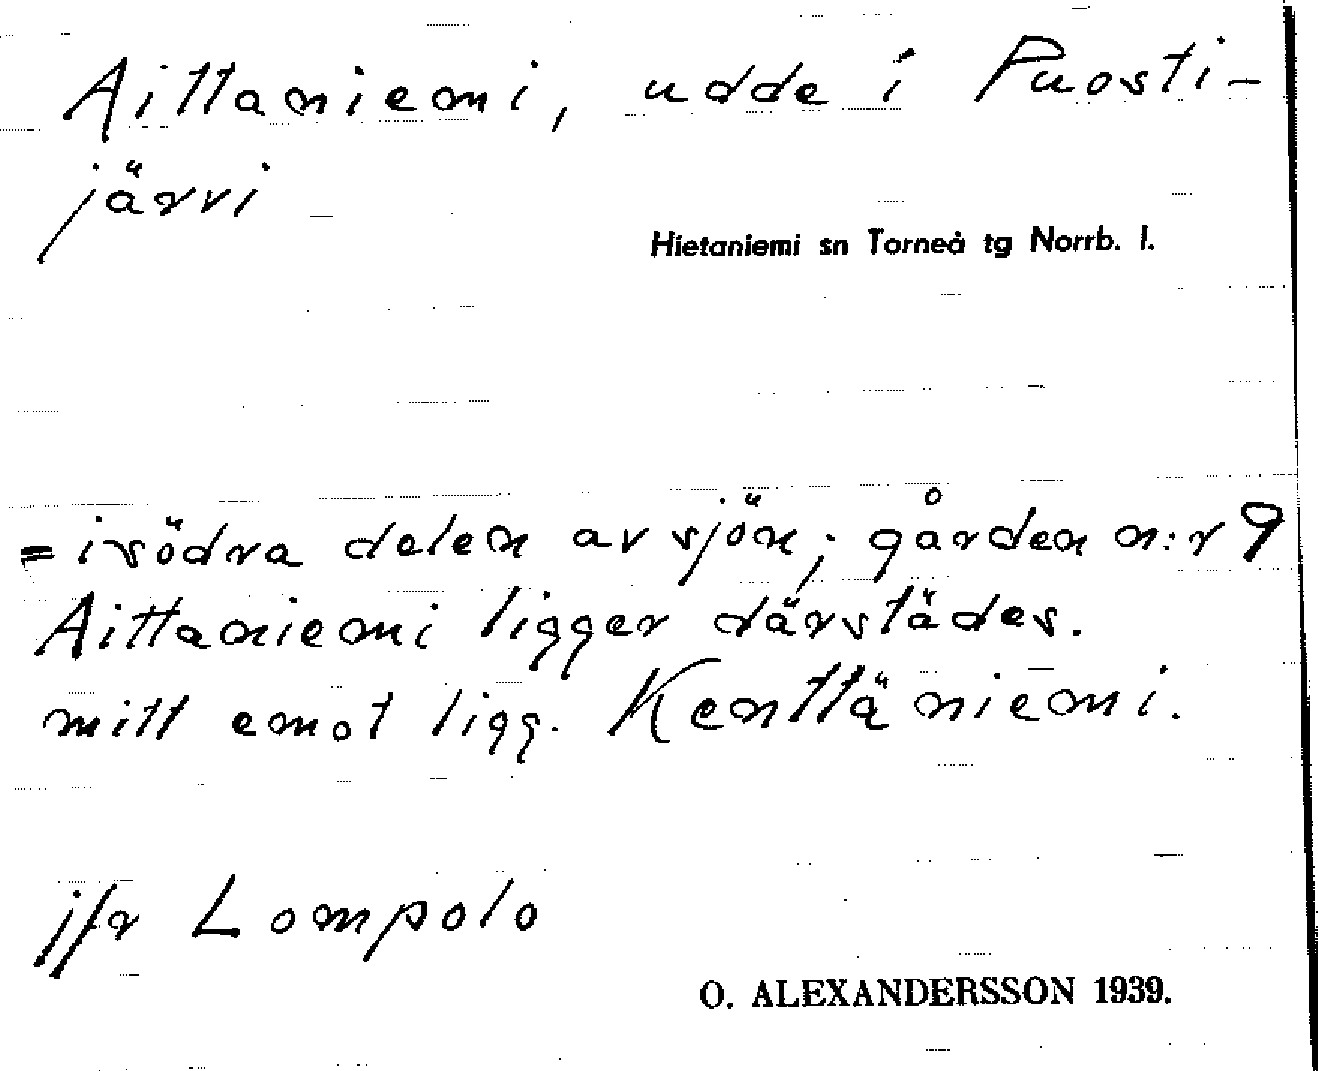 Aittaniemi, udde i Puosti-
järvi
Hietaniemi sn Torneå tg Norrb. l.
= i södra delen av sjön; gården n:r 9
Aittaniemi ligger därstädes.
mitt emot ligg. Kenttäniemi.
jfr Lompolo
O. ALEXANDERSSON 1939.